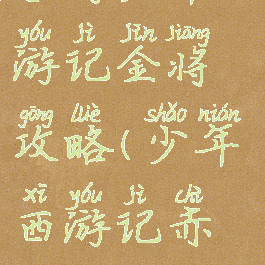 yóu jì jīn jiāng
游记金将
gōng lüè shǎo nián
攻略(少年
xī yóu jì chì
西游记赤